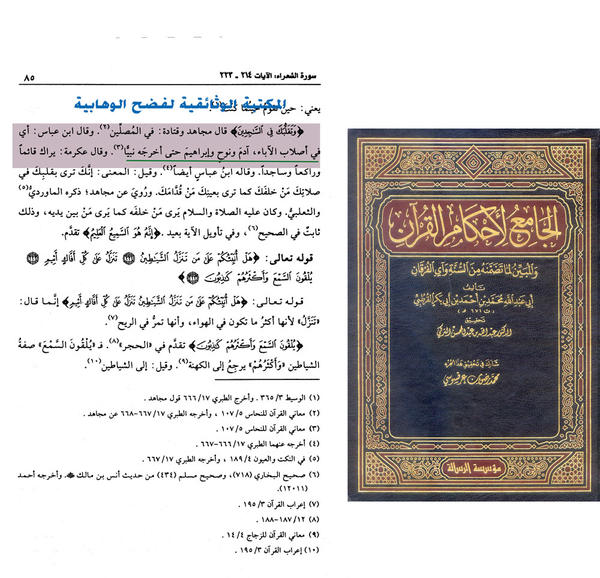 سورة الشعراء: الآيات ٢١٤ - ٢٢٣
٨٥
المكتبة الوثائقية لفضح الوهابية
﴿وَتَقَلُّبَكَ فِي السَّاجِدِينَ﴾ قال مجاهد وقتادة: في المُصلِّين(٢). وقال ابن عباس: أي
في أصلاب الآباء، آدمَ ونوحٍ وإبراهيمَ حتى أخرجَه نبيًّا(٣). وقال عكرمة: يراك قائماً
وراكعاً وساجداً. وقاله ابنُ عباس أيضاً(٤). وقيل: المعنى: إنَّك ترى بقلبك في
صلاتِكَ مَنْ خلفَكَ كما ترى بعينِكَ مَنْ قُدَّامَكَ. ورُويَ عن مجاهد؛ ذكره الماورديُّ(٥)
والثعلبيُّ. وكان عليه الصلاة والسلام يَرى مَنْ خلفَه كما يرى مَنْ بين يديه، وذلك
ثابتٌ في الصحيح(٦)، وفي تأويل الآية بعيد. ﴿إِنَّهُ هُوَ السَّمِيعُ الْعَلِيمُ﴾ تقدَّم.
قوله تعالى: ﴿هَلْ أُنَبِّئُكُمْ عَلَى مَن تَنَزَّلُ الشَّيَاطِينُ ﴿٢٢١﴾ تَنَزَّلُ عَلَى كُلِّ أَفَّاكٍ أَثِيمٍ ﴿٢٢٢﴾
يُلْقُونَ السَّمْعَ وَأَكْثَرُهُمْ كَاذِبُونَ ﴿٢٢٣﴾﴾
قوله تعالى: ﴿هَلْ أُنَبِّئُكُمْ عَلَى مَن تَنَزَّلُ الشَّيَاطِينُ تَنَزَّلُ عَلَى كُلِّ أَفَّاكٍ أَثِيمٍ﴾ إنَّما قال:
«تَنَزَّلُ» لأنها أكثرُ ما تكون في الهواء، وأنها تمرُّ في الريح(٧).
﴿يُلْقُونَ السَّمْعَ وَأَكْثَرُهُمْ كَاذِبُونَ﴾ تقدَّم في «الحجر»(٨). فـ «يُلْقُونَ السَّمْعَ» صفةُ
الشياطين «وَأَكْثَرُهُمْ» يرجعُ إلى الكهنة(٩). وقيل: إلى الشياطين(١٠).
(١) الوسيط ٣/ ٣٦٥ . وأخرج الطبري ١٧/ ٦٦٦ قول مجاهد.
(٢) معاني القرآن للنحاس ٥/ ١٠٧ ، وأخرجه الطبري ١٧/ ٦٦٧-٦٦٨ عن مجاهد .
(٣) معاني القرآن للنحاس ٥/ ١٠٧ .
(٤) أخرجه عنهما الطبري ١٧/ ٦٦٦-٦٦٧ .
(٥) في النكت والعيون ٤/ ١٨٩ ، وأخرجه الطبري ١٧/ ٦٦٧ .
(٦) صحيح البخاري (٧١٨)، وصحيح مسلم (٤٣٤) من حديث أنس بن مالك ﷺ. وأخرجه أحمد
(١٢٠١١) .
(٧) إعراب القرآن ٣/ ١٩٥ .
(٨) ١٢/ ١٨٧-١٨٨ .
(٩) معاني القرآن للزجاج ٤/ ١٠٤ .
(١٠) إعراب القرآن ٣/ ١٩٥ .
الجامع لأحكام القرآن
والمبين لما تضمنه من السنة وآي الفرقان
تأليف
أبي عبد الله محمد بن أحمد بن أبي بكر القرطبي
(ت ٦٧١ هـ)
تحقيق
الدكتور عبد الله بن عبد المحسن التركي
شارك في تحقيق هذا الجزء
محمد رضوان عرقسوسي
مؤسسة الرسالة